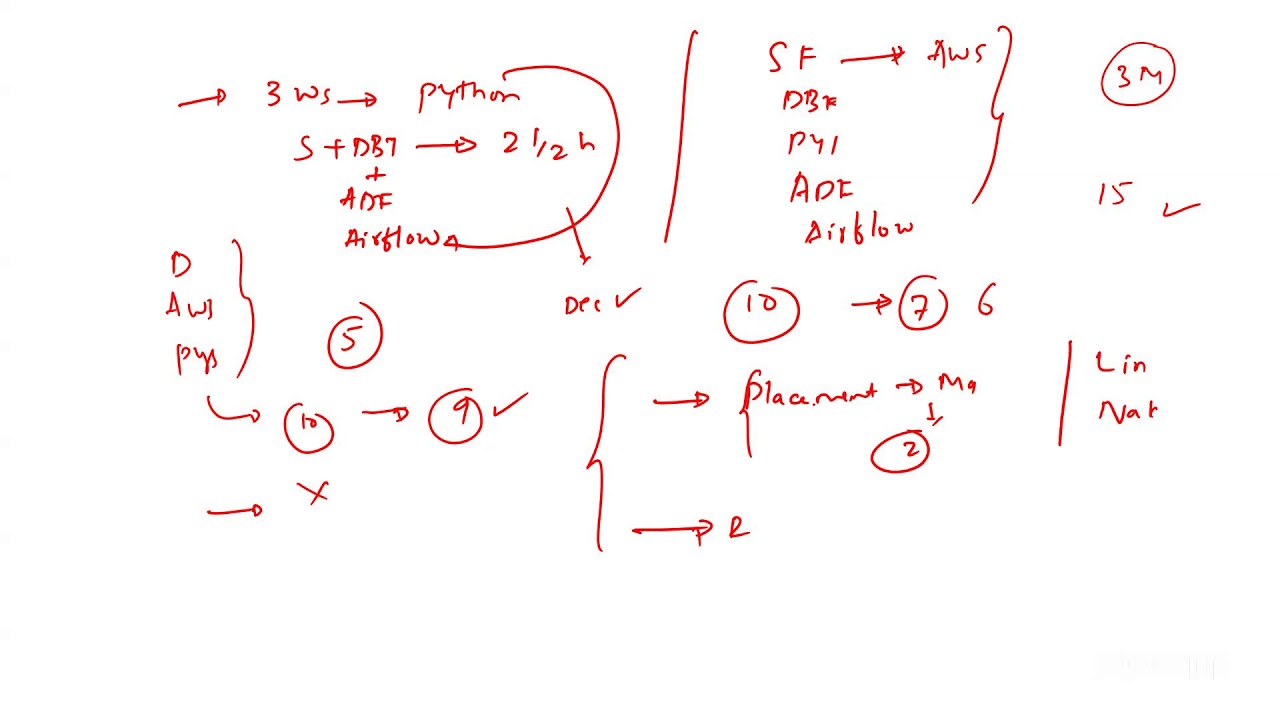 → 3 ws → python
S + DBT → 2 1/2 h
+
ADF
Airflow
Dec ✓
SF → AWS
DBT
PY
ADF
Airflow
3 M
15 ✓
D
Aws
Pys
5
10 → 9 ✓
→ X
10 → 7 6
→ placement → Ma
2
→ R
Lin
Nak